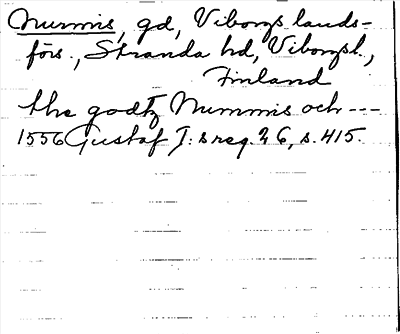 Nummis, gd, Viborgs lands-
förs., Stranda hd, Viborgsl.,
Finland
the godtz Nummis och ---
1556 Gustaf I:s reg. 26, s. 415.